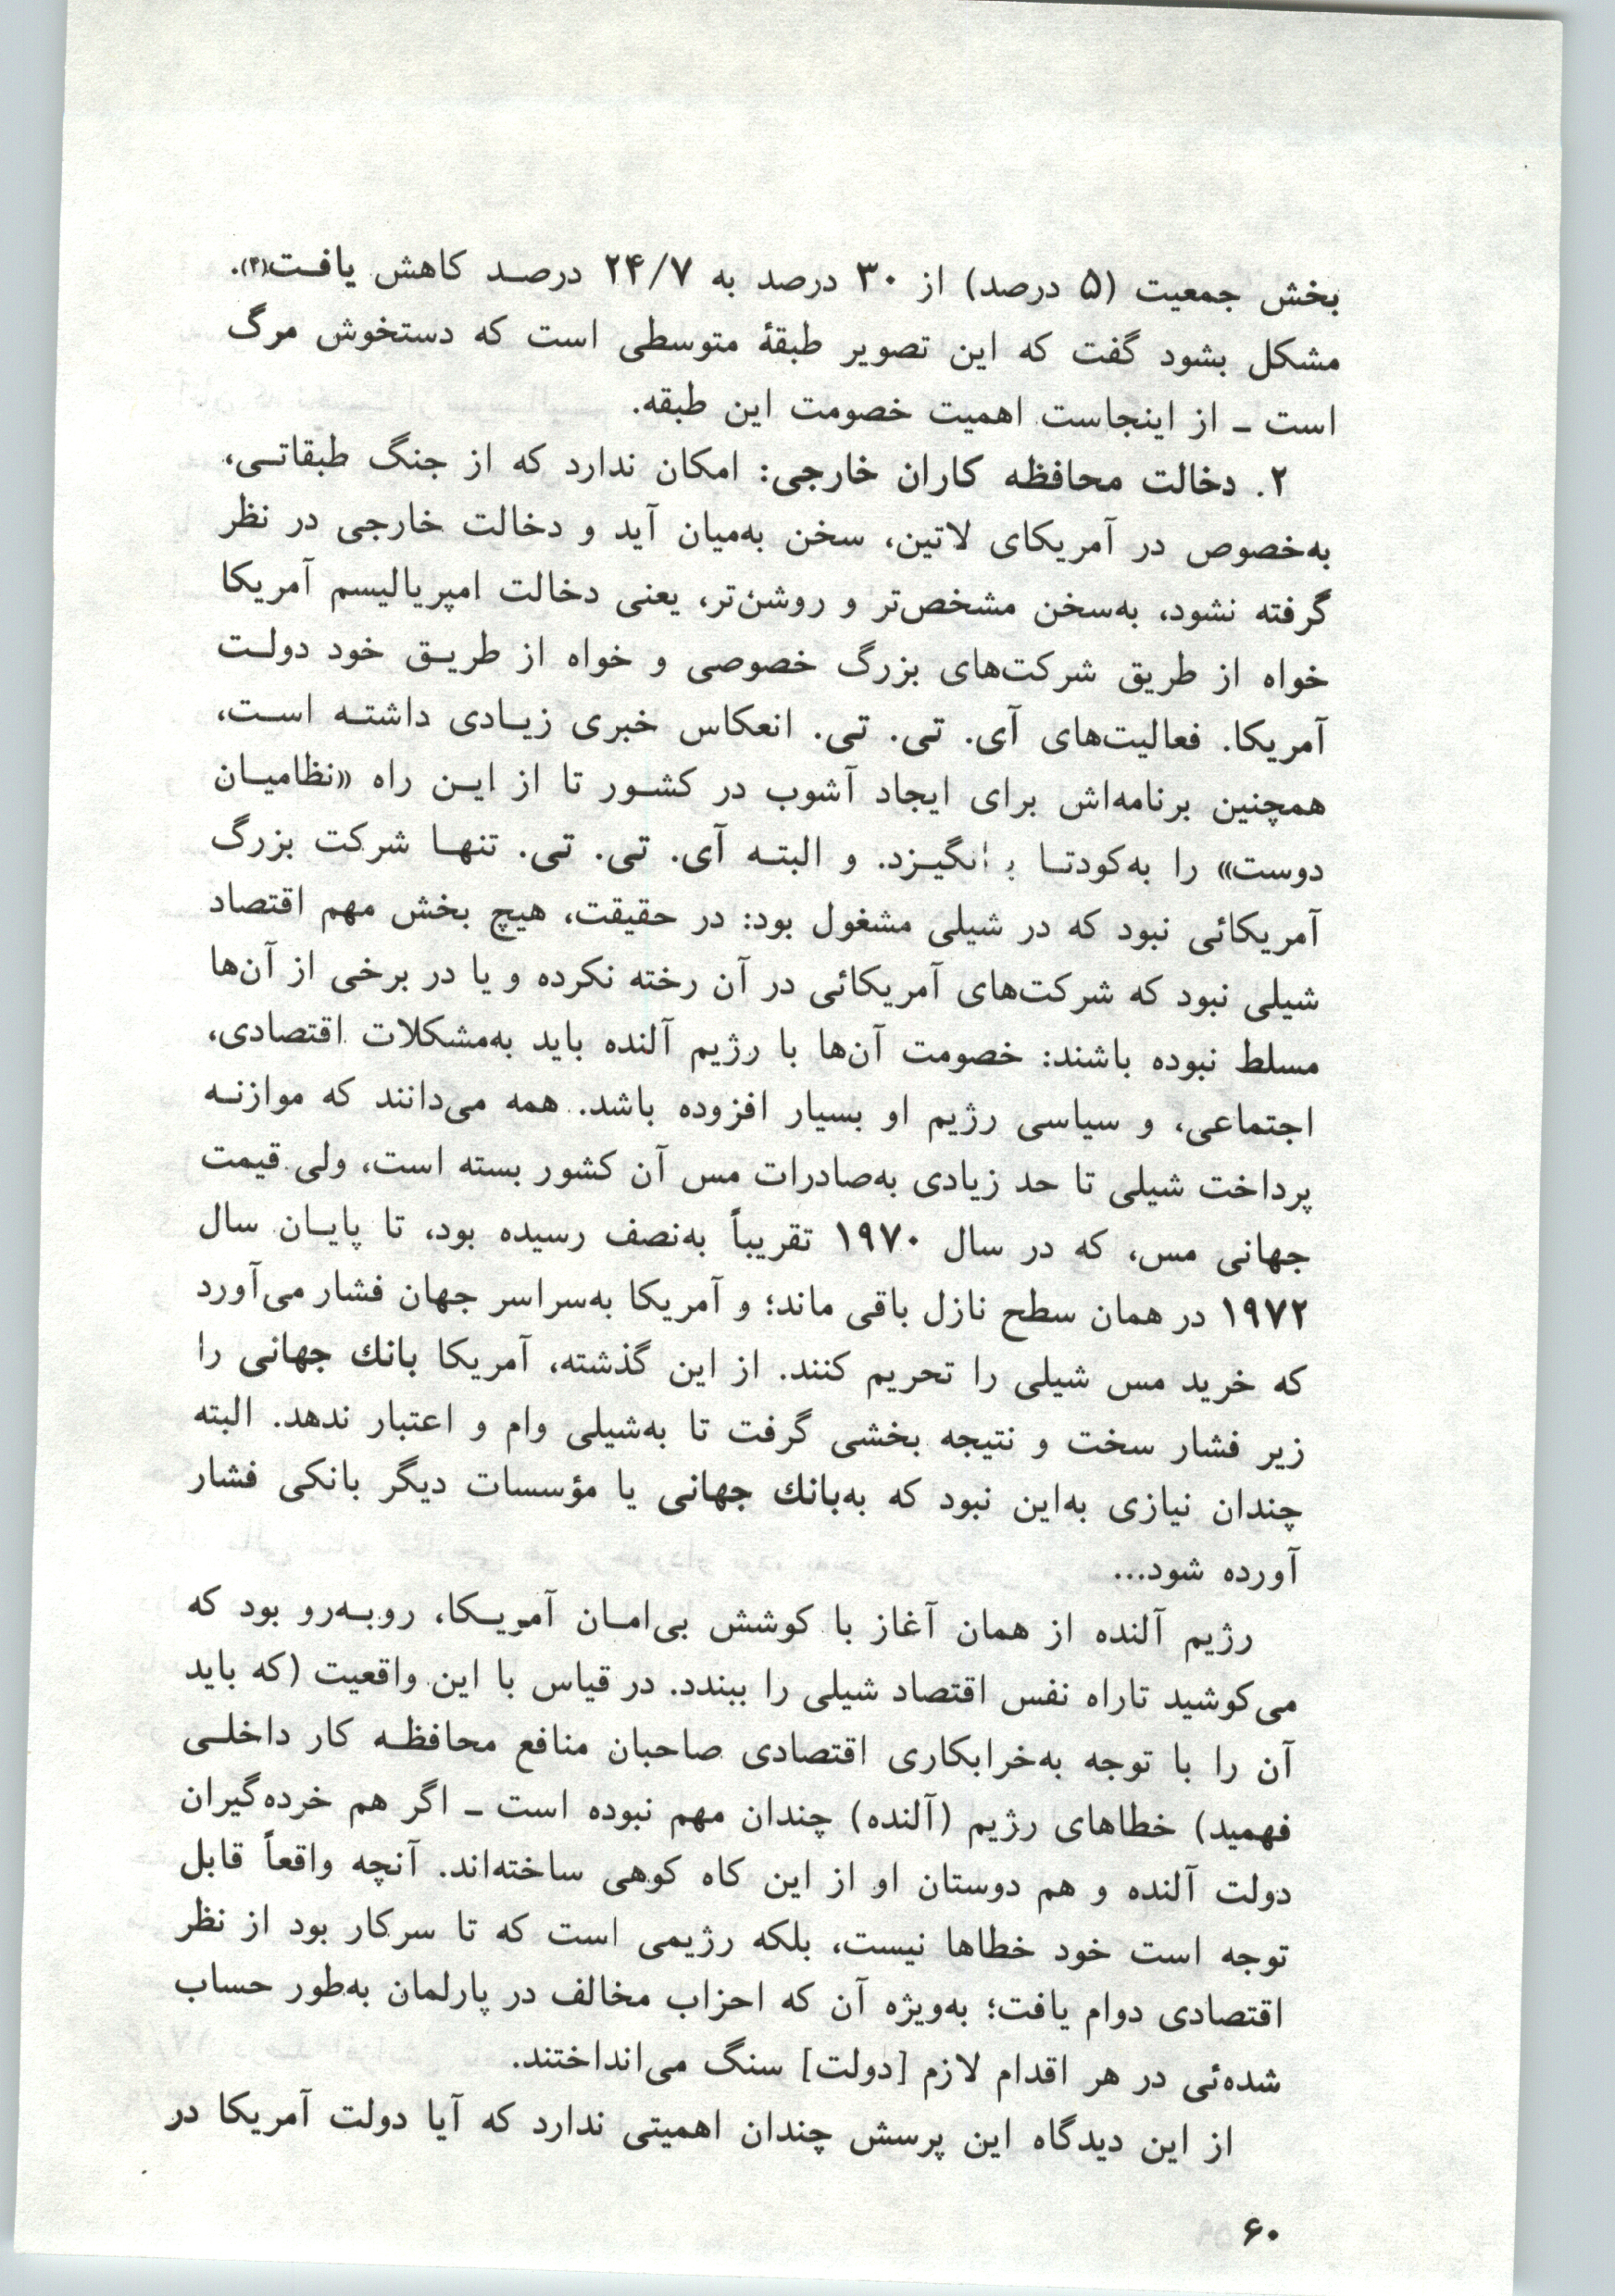 بخش جمعیت (۵ درصد) از ۳۰ درصد به ۲۴/۷ درصد کاهش یافت(۴).
مشکل بشود گفت که این تصویر طبقهٔ متوسطی است که دستخوش مرگ
است ـ از اینجاست اهمیت خصومت این طبقه.
۲. دخالت محافظه کاران خارجی: امکان ندارد که از جنگ طبقاتی،
به‌خصوص در آمریکای لاتین، سخن به‌میان آید و دخالت خارجی در نظر
گرفته نشود، به‌سخن مشخص‌تر و روشن‌تر، یعنی دخالت امپریالیسم آمریکا
خواه از طریق شرکت‌های بزرگ خصوصی و خواه از طریق خود دولت
آمریکا. فعالیت‌های آی. تی. تی. انعکاس خبری زیادی داشته است،
همچنین برنامه‌اش برای ایجاد آشوب در کشور تا از این راه «نظامیان
دوست» را به‌کودتا برانگیزد. و البته آی. تی. تی. تنها شرکت بزرگ
آمریکائی نبود که در شیلی مشغول بود: در حقیقت، هیچ بخش مهم اقتصاد
شیلی نبود که شرکت‌های آمریکائی در آن رخته نکرده و یا در برخی از آن‌ها
مسلط نبوده باشند: خصومت آن‌ها با رژیم آلنده باید به‌مشکلات اقتصادی،
اجتماعی، و سیاسی رژیم او بسیار افزوده باشد. همه می‌دانند که موازنه
پرداخت شیلی تا حد زیادی به‌صادرات مس آن کشور بسته است، ولی قیمت
جهانی مس، که در سال ۱۹۷۰ تقریباً به‌نصف رسیده بود، تا پایان سال
۱۹۷۲ در همان سطح نازل باقی ماند؛ و آمریکا به‌سراسر جهان فشار می‌آورد
که خرید مس شیلی را تحریم کنند. از این گذشته، آمریکا بانك جهانی را
زیر فشار سخت و نتیجه بخشی گرفت تا به‌شیلی وام و اعتبار ندهد. البته
چندان نیازی به‌این نبود که به‌بانك جهانی یا مؤسسات دیگر بانکی فشار
آورده شود...
رژیم آلنده از همان آغاز با کوشش بی‌امان آمریکا، روبه‌رو بود که
می‌کوشید تاراه نفس اقتصاد شیلی را ببندد. در قیاس با این واقعیت (که باید
آن را با توجه به‌خرابکاری اقتصادی صاحبان منافع محافظه کار داخلی
فهمید) خطاهای رژیم (آلنده) چندان مهم نبوده است ـ اگر هم خرده‌گیران
دولت آلنده و هم دوستان او از این کاه کوهی ساخته‌اند. آنچه واقعاً قابل
توجه است خود خطاها نیست، بلکه رژیمی است که تا سرکار بود از نظر
اقتصادی دوام یافت؛ به‌ویژه آن که احزاب مخالف در پارلمان به‌طور حساب
شده‌ئی در هر اقدام لازم [دولت] سنگ می‌انداختند.
از این دیدگاه این پرسش چندان اهمیتی ندارد که آیا دولت آمریکا در
۶۰